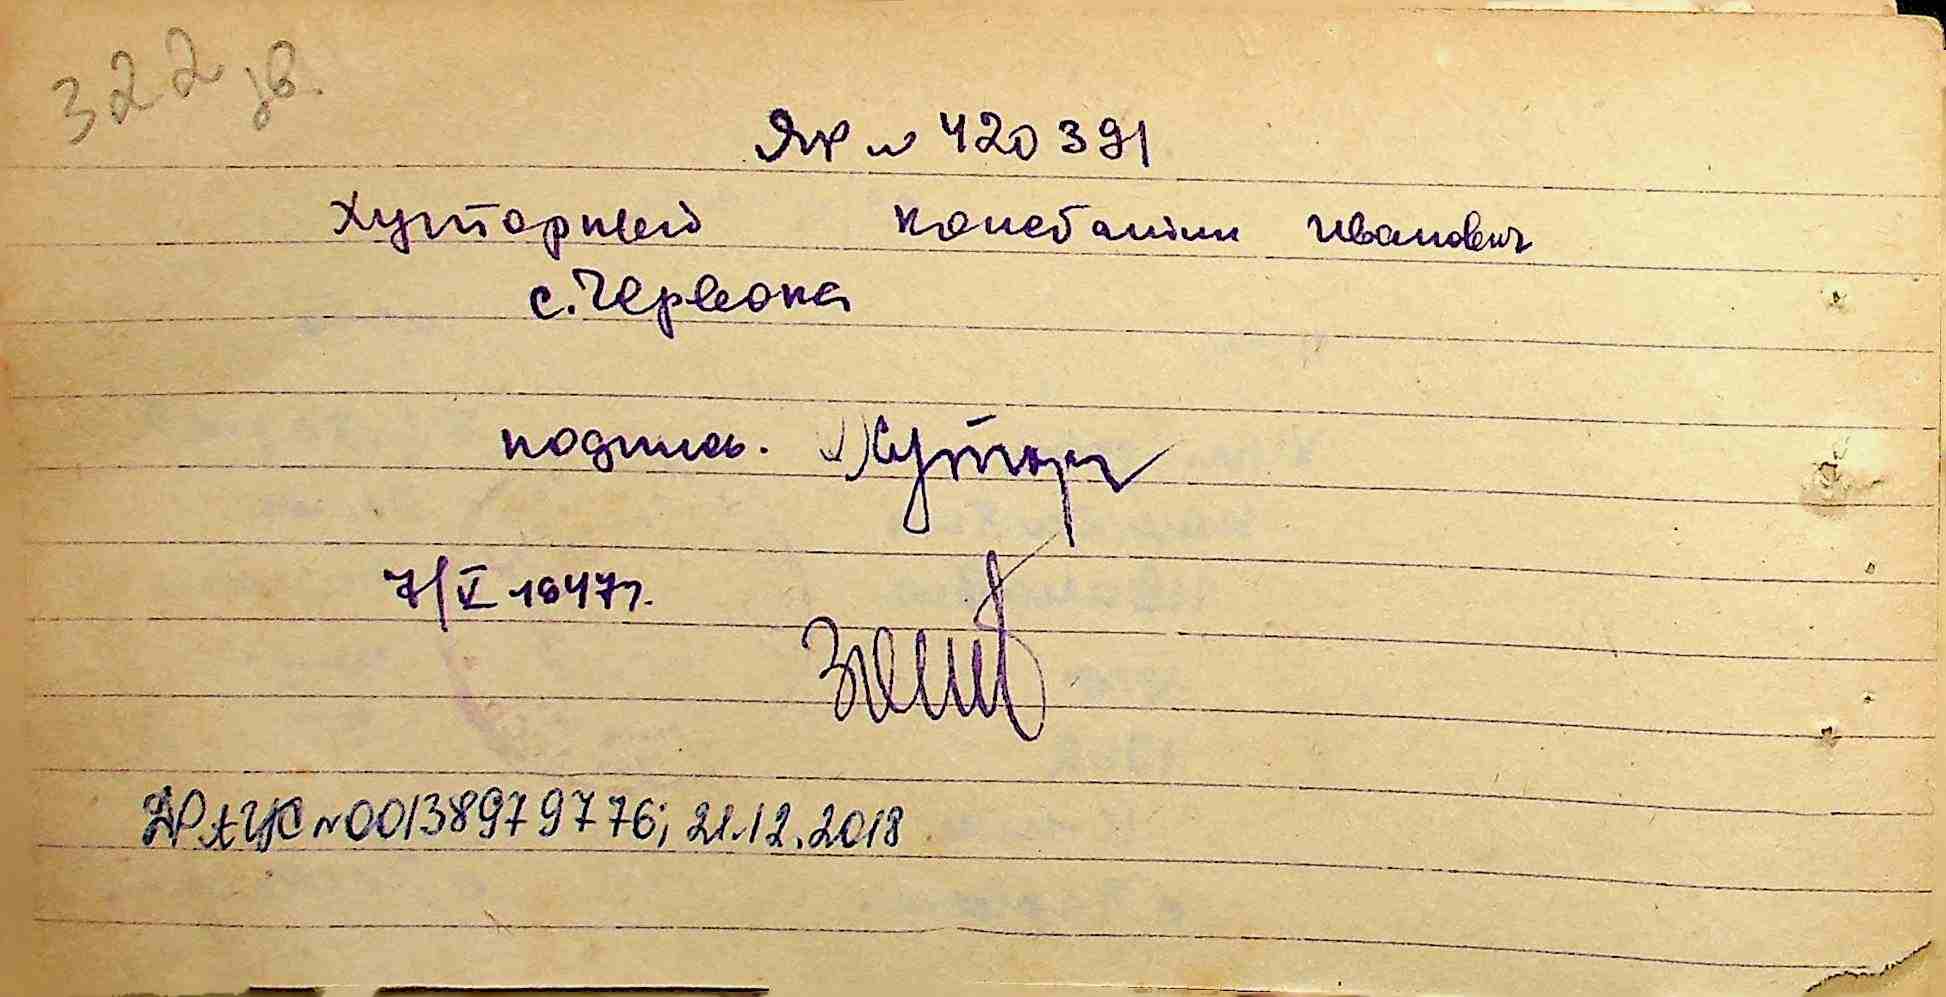 322 зв.
ЯР № 420391
Хуторный Константин Иванович
с. Червона
подпись. Хутор
7/V 1947г.
ДРАЦС № 00138979776; 21.12.2018